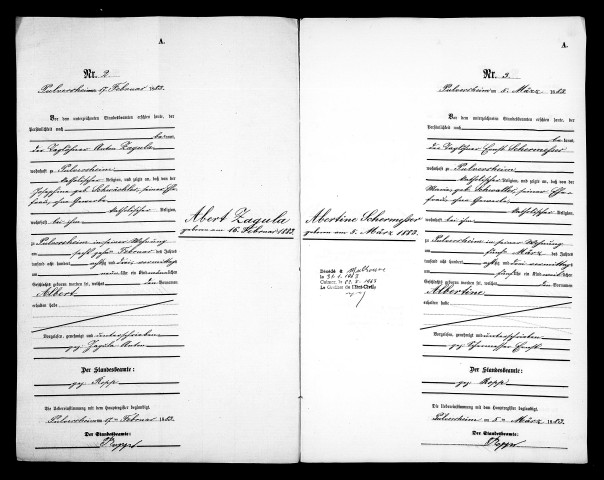 A.
Nr. 2.
Pulversheim am 17 Februar 1883.
Vor dem unterzeichneten Standesbeamten erschien heute, der
Persönlichkeit nach
kannt,
der Taglöhner Anton Zagula
wohnhaft zu Pulversheim
katholischer Religion, und zeigte an, daß von der
Josephina geb. Schwäbler, seiner Ehe-
frau, ohne Gewerbe
katholischer Religion,
wohnhaft bei ihm
zu Pulversheim in seiner Wohnung
am Februar des Jahres
tausend acht hundert achtzig drei Vormittags
um Uhr ein Kind männlichen
Geschlechts geboren worden sei, welches den Vornamen
Albert
erhalten habe
Vorgelesen, genehmigt und unterschrieben
gez. Zagula Anton
Der Standesbeamte:
gez. Ropp
Die Uebereinstimmung mit dem Hauptregister beglaubigt.
Pulversheim am 17ten Februar 1883.
Der Standesbeamte:
Ropp
Abert Zagula
geboren am 16. Februar 1883.
Abertine Schermesser
geboren am 5. März 1883.
Décédé à Mulhouse
le
Colmar, le
Le Greffier de l'Etat-Civil:
A.
Nr. 3.
Pulversheim am 5. März 1883.
Vor dem unterzeichneten Standesbeamten erschien heute, der
Persönlichkeit nach
kannt,
der Taglöhner Ernst Schermesser
wohnhaft zu Pulversheim
katholischer Religion, und zeigte an, daß von der
Maria, geb. Schwaller, seiner Ehe-
frau, ohne Gewerbe
katholischer Religion,
wohnhaft bei ihm
zu Pulversheim in seiner Wohnung
am fünften März des Jahres
tausend acht hundert achtzig drei Vormittags
um fünf Uhr ein Kind weiblichen
Geschlechts geboren worden sei, welches den Vornamen
Albertine
erhalten habe
Vorgelesen, genehmigt und unterschrieben
gez. Schermesser Ernst
Der Standesbeamte:
gez. Ropp
Die Uebereinstimmung mit dem Hauptregister beglaubigt.
Pulversheim am 5ten März 1883.
Der Standesbeamte:
Ropp